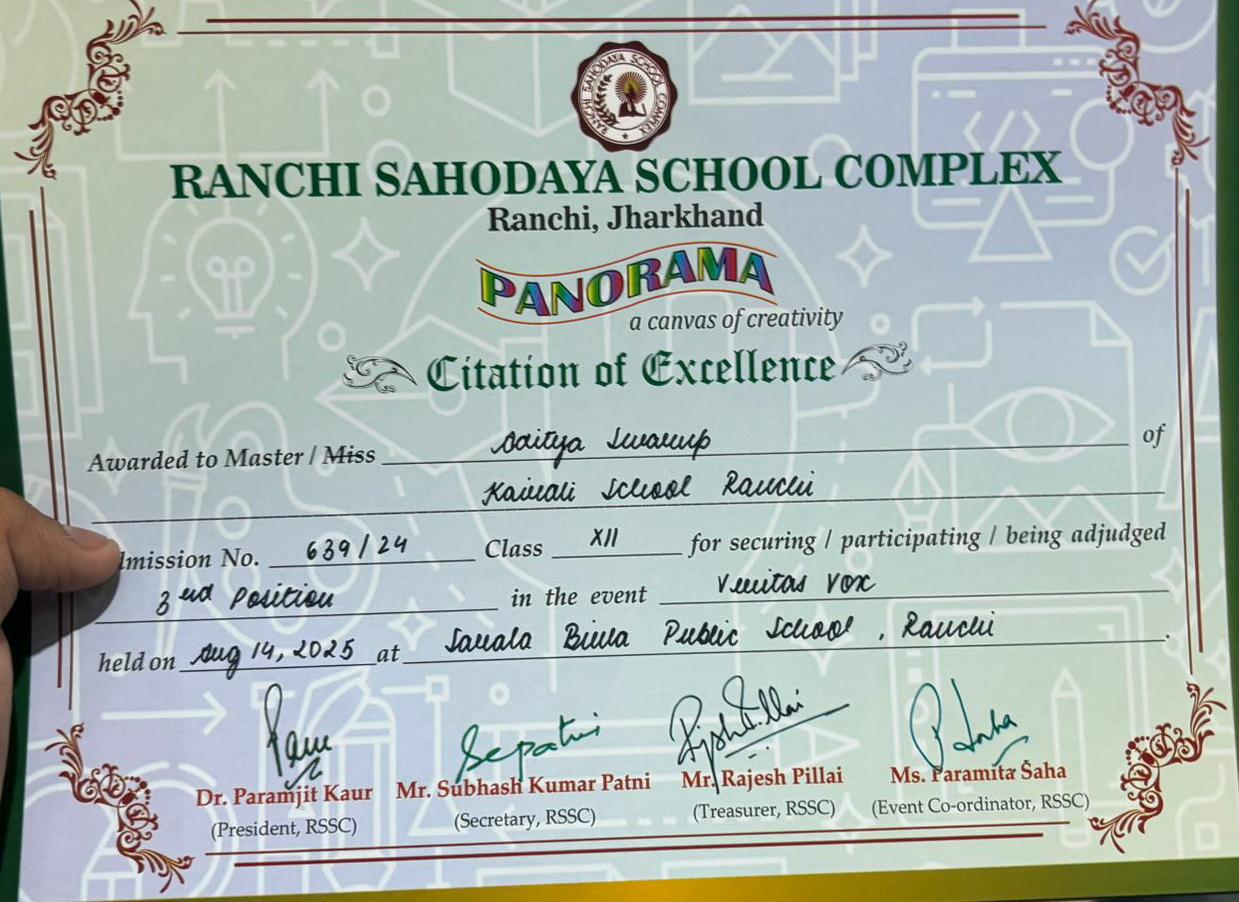 RANCHI SAHODAYA SCHOOL COMPLEX
RANCHI SAHODAYA SCHOOL COMPLEX
Ranchi, Jharkhand
PANORAMA
a canvas of creativity
Citation of Excellence
Awarded to Master / Miss Aaitya Swarup of
Kairali School Ranchi
dmission No. 639/24 Class XII for securing / participating / being adjudged
3rd Position in the event Veritas Vox
held on Aug 14, 2025 at Sarala Birla Public School, Ranchi.
Dr. Paramjit Kaur Mr. Subhash Kumar Patni Mr. Rajesh Pillai Ms. Paramita Saha
(President, RSSC) (Secretary, RSSC) (Treasurer, RSSC) (Event Co-ordinator, RSSC)